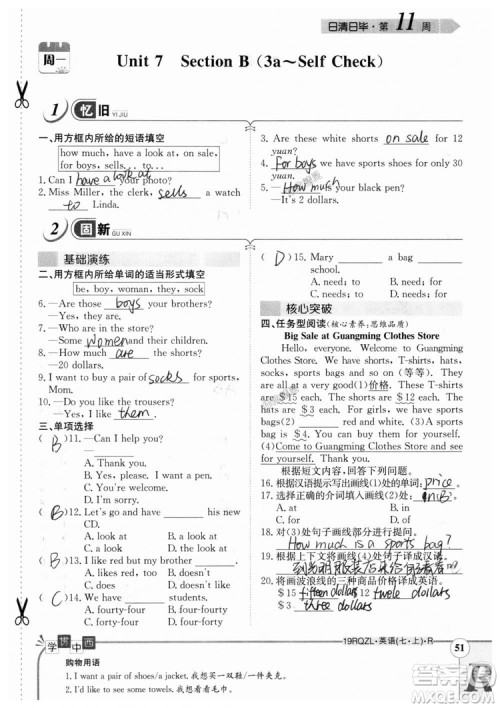 日清日毕·第 11 周
周一
Unit 7 Section B (3a～Self Check)
1 忆旧 YI JIU
一、用方框内所给的短语填空
how much, have a look at, on sale,
for boys, sell to
1. Can I have a look at your photo?
2. Miss Miller, the clerk, sells a watch
to Linda.
3. Are these white shorts on sale for 12
yuan?
4. For boys we have sports shoes for only 30
yuan.
5. —How much is your black pen?
—It's 2 dollars.
2 固新 GU XIN
基础演练
二、用方框内所给单词的适当形式填空
be, boy, woman, they, sock
6. —Are those boys your brothers?
—Yes, they are.
7. —Who are in the room?
—Some women and their children.
8. —How much are the shorts?
—20 dollars.
9. I want to buy a pair of socks for sports,
Mom.
10. —Do you like the trousers?
—Yes, I like them very much.
三、单项选择
( B )11. —Can I help you?
—
A. Thank you.
B. Yes, please. I want a pen.
C. You're welcome.
( B )12. Let's go and have his new
CD.
A. look at B. a look at
C. look
( B )13. I like red and he
A. likes red, too B. likes red
C. does, too
( C )14. What's four and ten? It's
A. four-four B. forty-four
C. fourteen
( D )15. Mary a bag
school.
A. need; to B. need; for
C. needs; for D. needs; to
核心突破
四、任务型阅读(核心素养:思维品质)
Big Sale at Guangming Clothes Store
Hello, everyone. Welcome to Guangming
Clothes Store. We have shorts, T-shirts, hats,
socks, sports bags and so on (等等). They are
all on sale. The price of (1)价格. The T-shirts
are $15 each and the shorts are $12. The
hats are $3. For girls, we have sports
bags(2) red and yellow for only $51.
(4)Come to Guangming Clothes Store and see
for yourself. Thank you.
根据短文内容,回答下列问题。
16. 根据汉语提示写出画线(1)处的单词 price。
17. 选择正确的介词填入画线(2)处 in B。
A. at B. in
C. for D. on
18. 对(3)处句子画线部分提问。
How much is a sports bag?
19. 根据上下文将画线(4)处句子译成汉语。
20. 将画波浪线的三种商品价格译成英语。
$15 fifteen dollars $12 dollars
$3 three dollars
学博中西
购物用语
1. I want a pair of shoes/a jacket. 我想买一双鞋/一件夹克。
2. I'd like to see some towels. 我想看看毛巾。
19RQZL·英语(七·上)·R
51